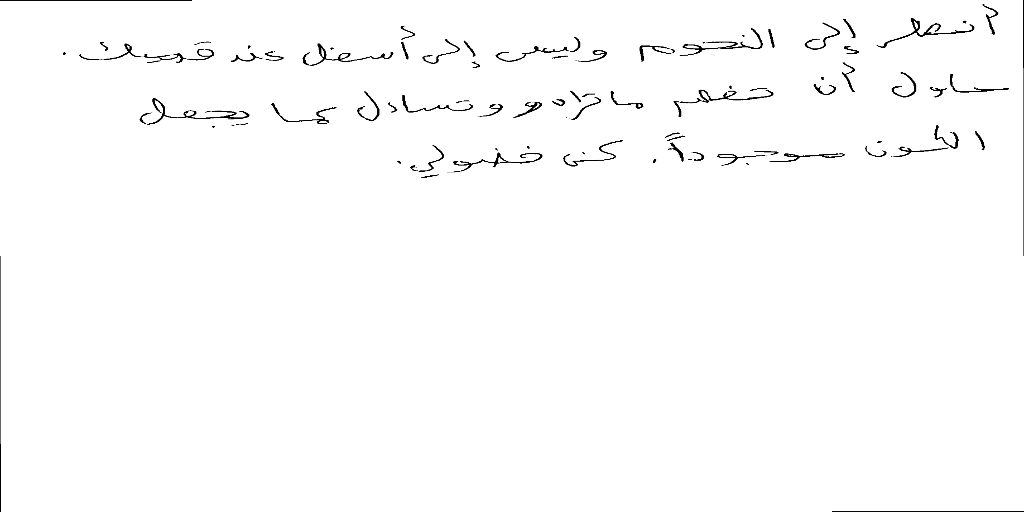 أنظر إلى النجوم وليس إلى أسفل عند قدميك.
حاول أن تفهم ما تراه وتساءل عما يجعل
الكون موجوداً. كن فضولي.